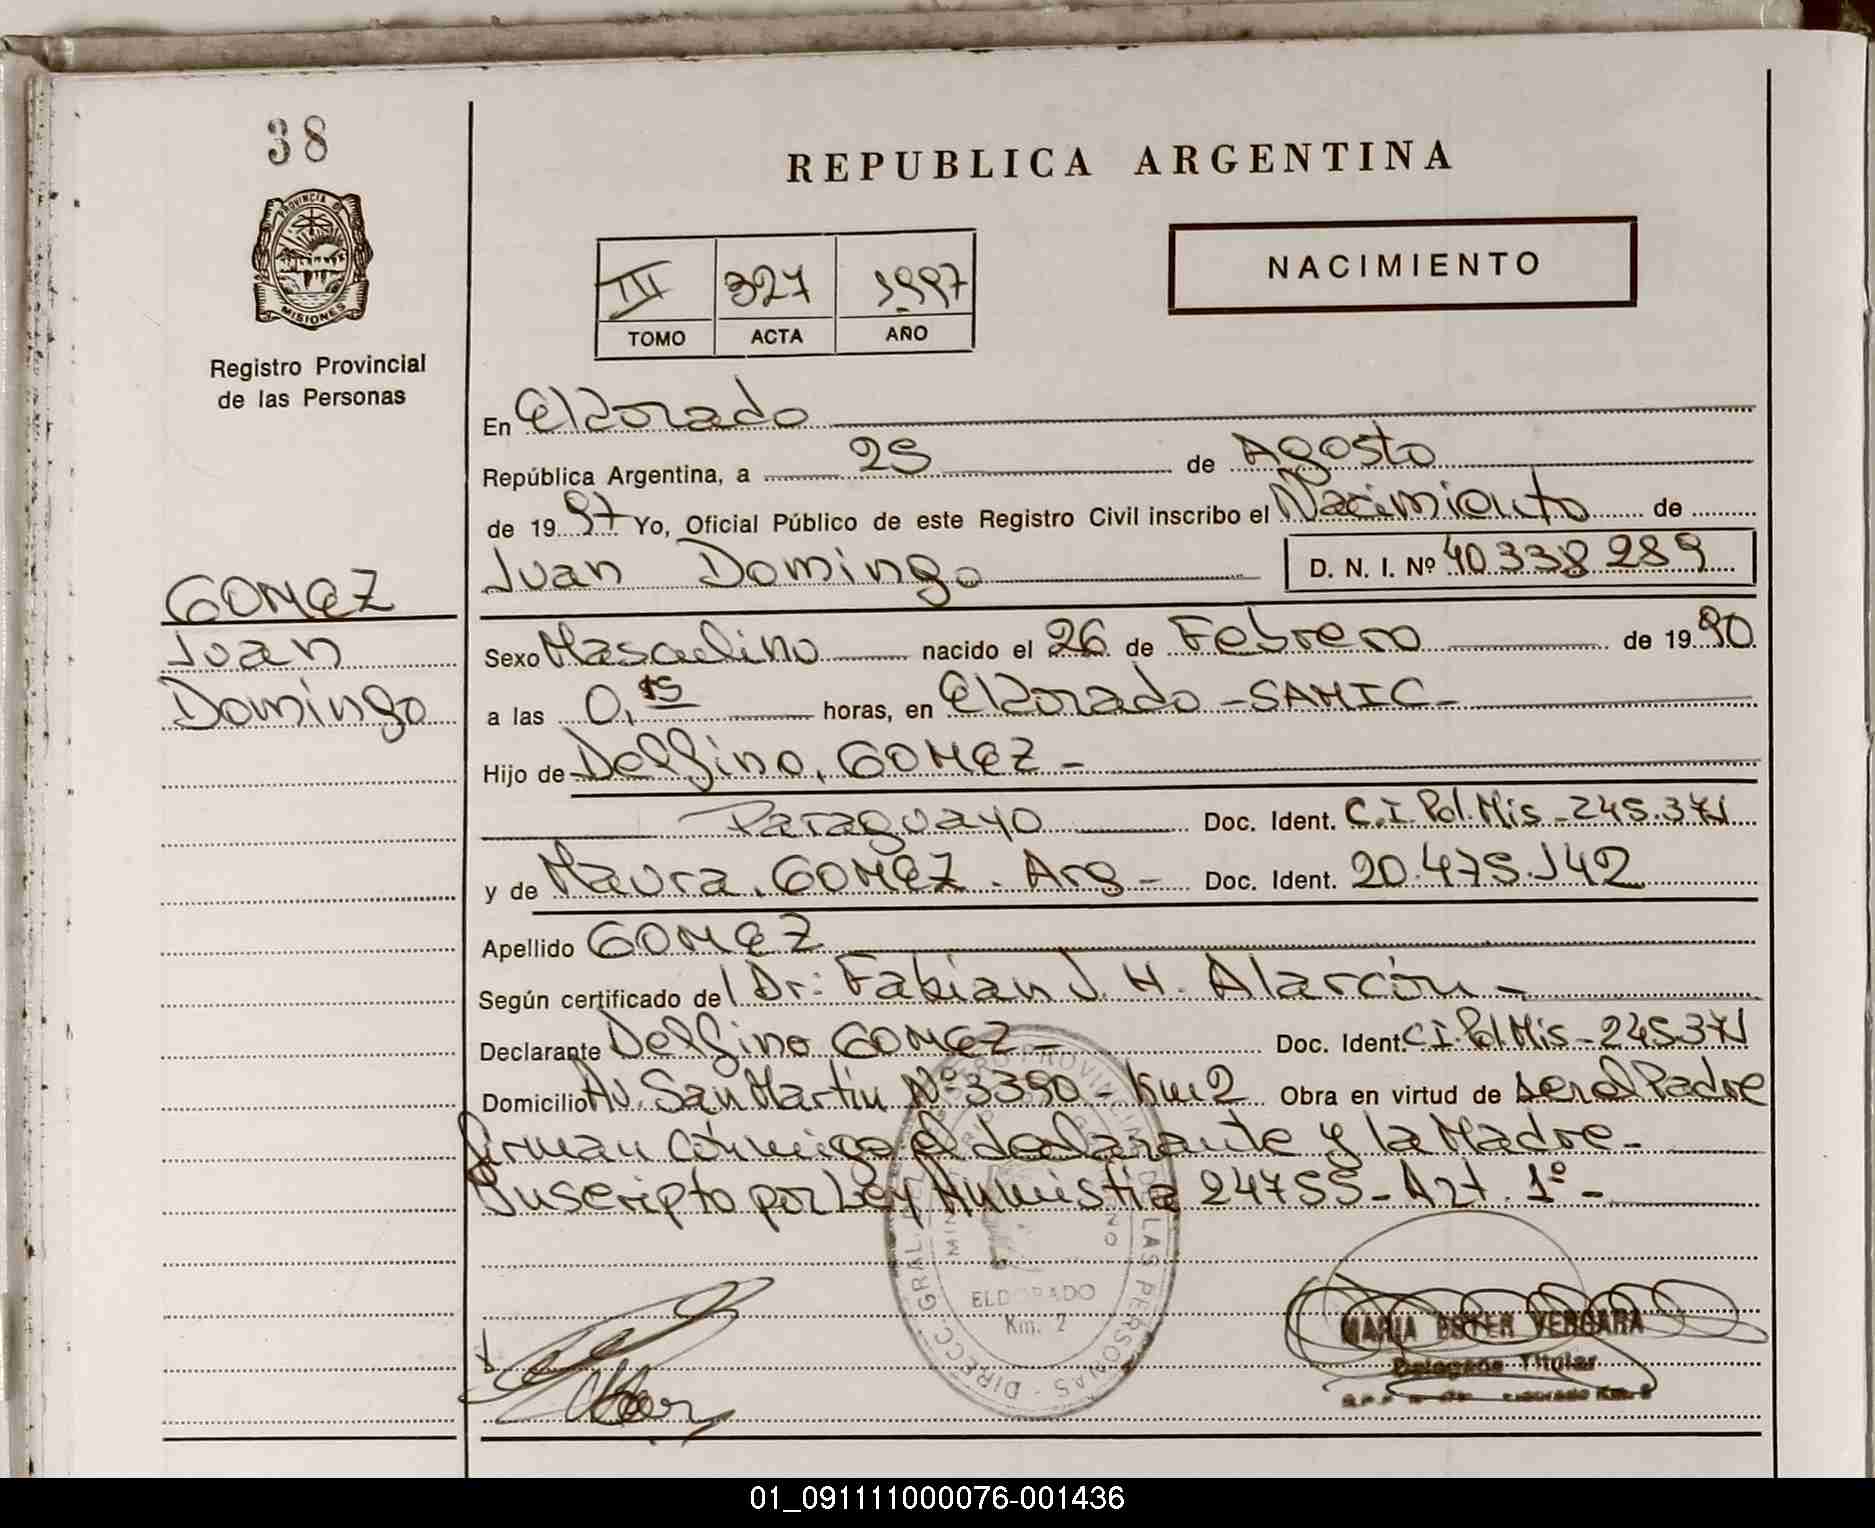 38
REPUBLICA ARGENTINA
PROVINCIA DE
MISIONES
III 327 1997
TOMO ACTA AÑO
NACIMIENTO
Registro Provincial
de las Personas
En Eldorado
República Argentina, a 25 de Agosto
de 19 97 Yo, Oficial Público de este Registro Civil inscribo el Nacimiento de
Juan Domingo D. N. I. Nº 40.338.289
GOMEZ
Juan
Domingo
Sexo Masculino nacido el 26 de Febrero de 19 90
a las 0,15 horas, en Eldorado - SAMIC -
Hijo de Delfino, GOMEZ -
Paraguayo Doc. Ident. C.I. Pol. Mis - 245.371
y de Maura, GOMEZ. Arg - Doc. Ident. 20.475.142
Apellido GOMEZ
Según certificado del Dr: Fabian J. H. Alarcón -
Declarante Delfino GOMEZ - Doc. Ident. C.I. Pol Mis - 245.371
Domicilio Av. San Martin Nº 3390 - Km 2 Obra en virtud de ser el Padre
firman conmigo el declarante y la Madre -
Inscripto por Ley Amnistia 24755 - Art. 1º -
DIRECC. GRAL. DEL REGISTRO PROVINCIAL DE LAS PERSONAS
ELDORADO
Km. 2
MARIA ESTER VERGARA
Delegada Titular
Eldorado Km. 2
01_091111000076-001436